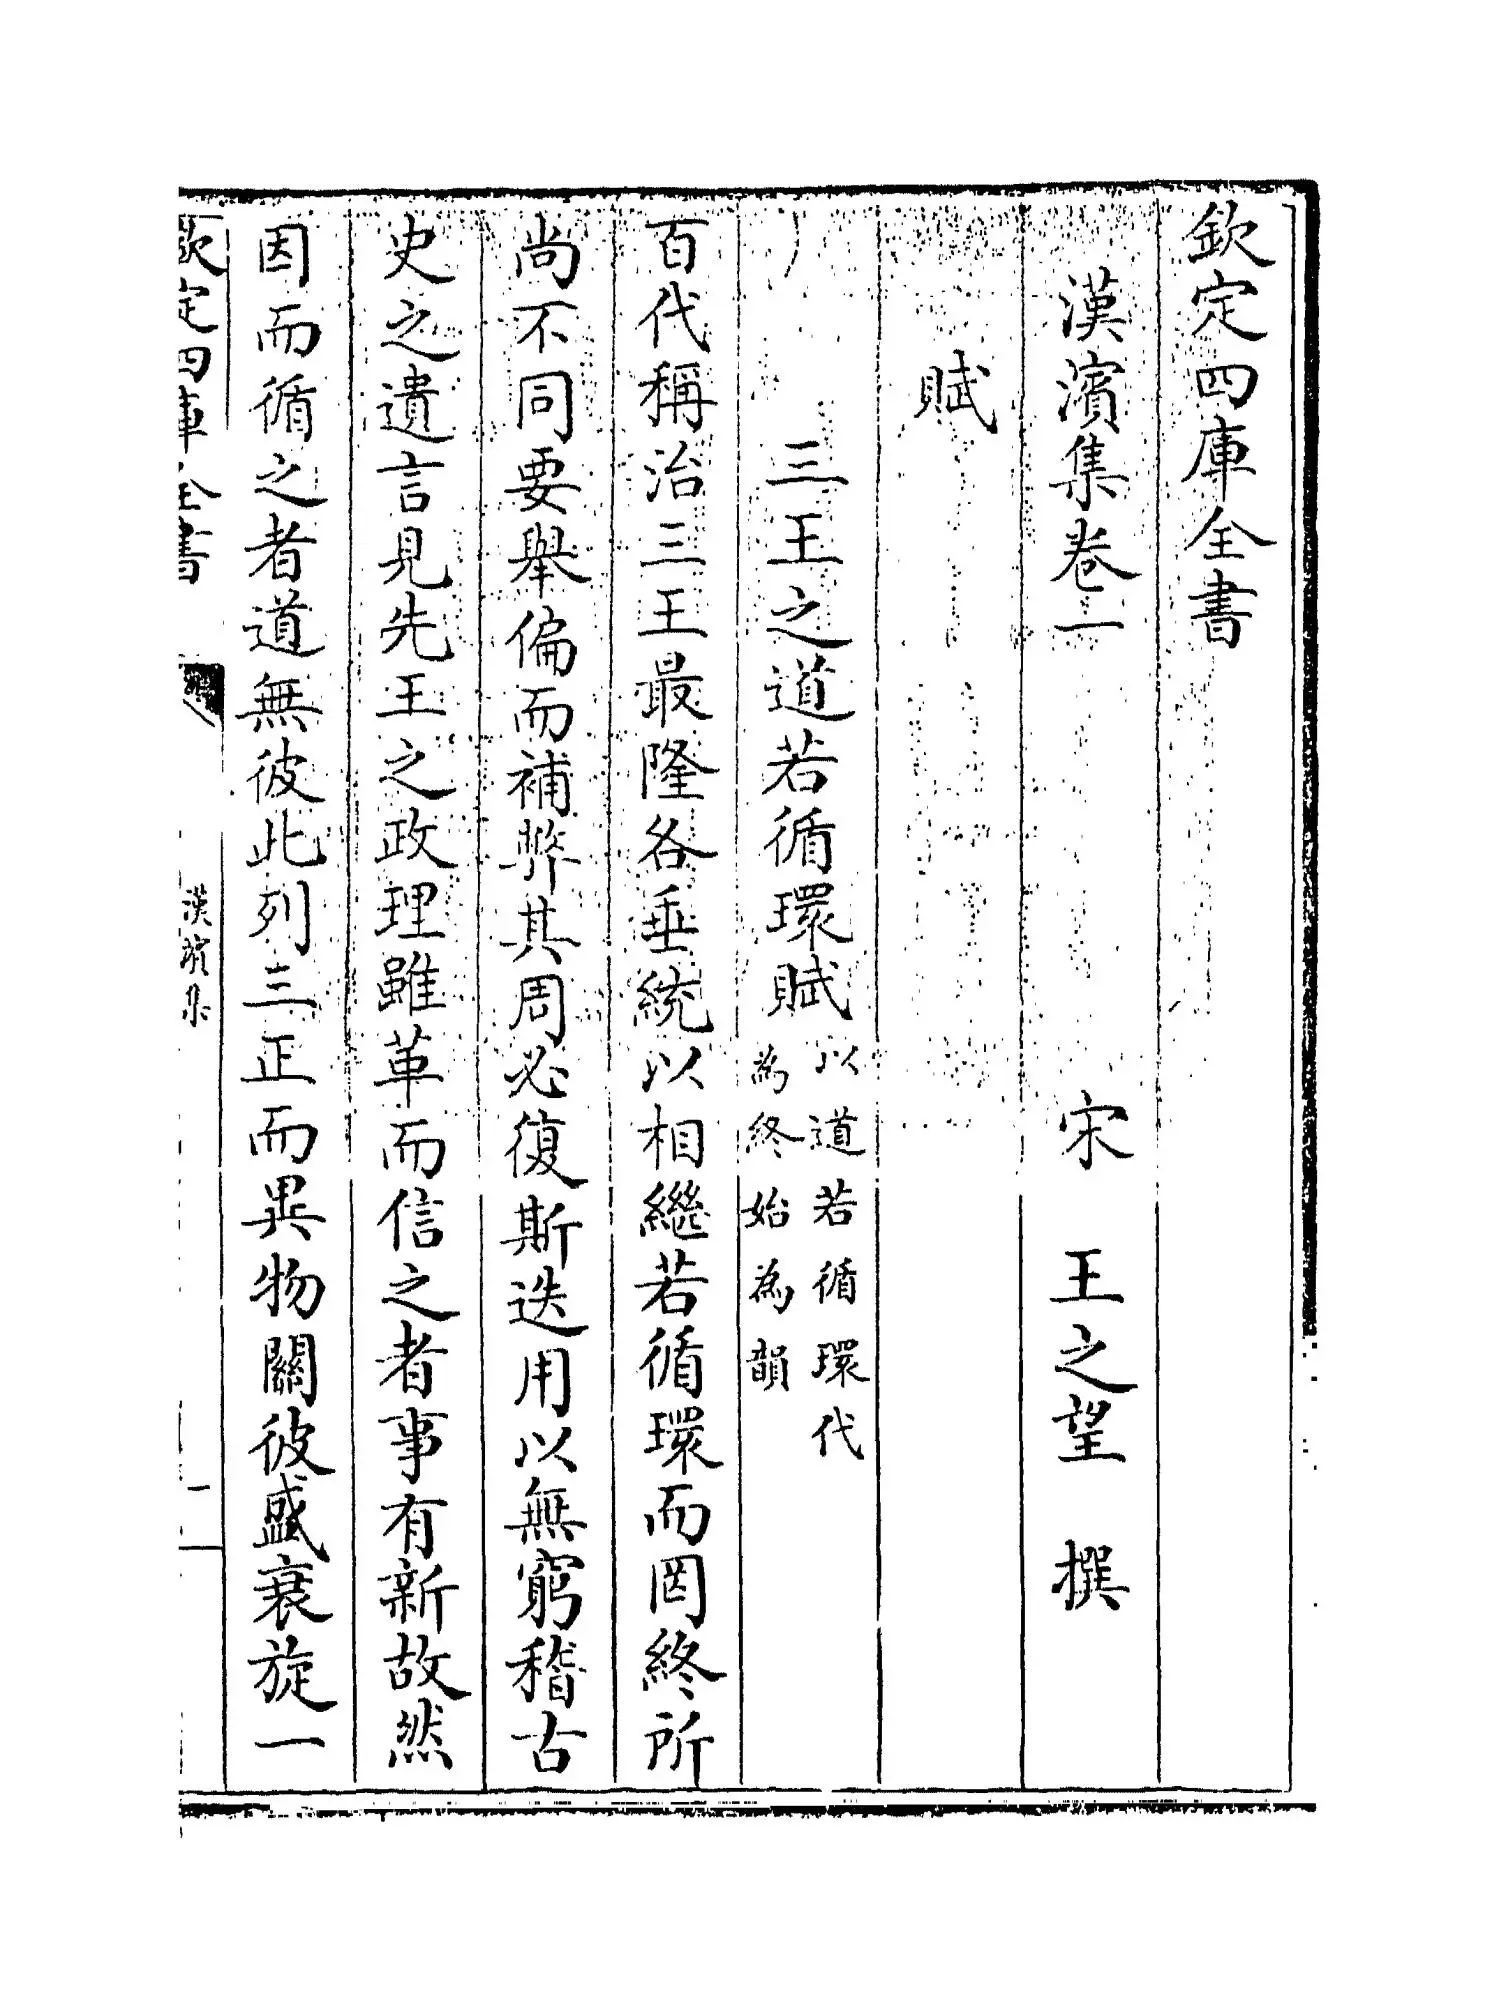 欽定四庫全書
漢濱集卷一　宋　王之望　撰
賦
三王之道若循環賦以道若循環代為終始為韻
百代稱治三王最隆各垂統以相繼若循環而罔終所
尚不同要舉偏而補弊其周必復斯迭用以無窮稽古
史之遺言見先王之政理雖革而信之者事有新故然
因而循之者道無彼此列三正而異物關彼盛衰旋一
欽定四庫全書　漢濱集　一